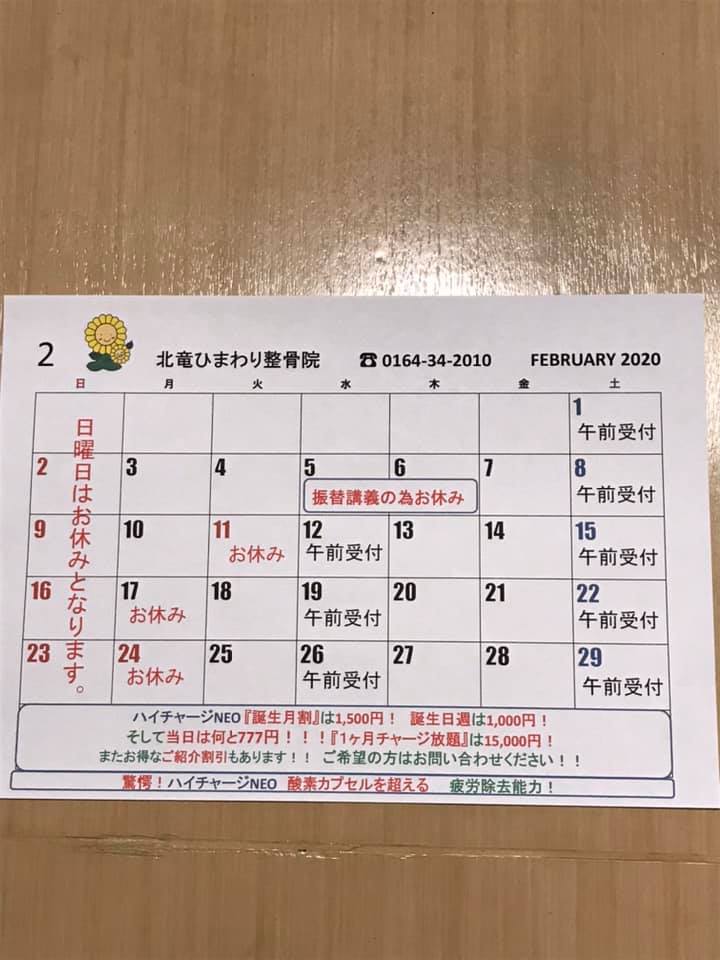 2 北竜ひまわり整骨院 ☎0164-34-2010 FEBRUARY 2020
日 月 火 水 木 金 土
1
午前受付
日曜日はお休みとなります。
2 3 4 5 6 7 8
振替講義の為お休み 午前受付
9 10 11 12 13 14 15
お休み 午前受付 午前受付
16 17 18 19 20 21 22
お休み 午前受付 午前受付
23 24 25 26 27 28 29
お休み 午前受付 午前受付
ハイチャージNEO『誕生月割』は1,500円！ 誕生日週は1,000円！
そして当日は何と777円！！！『1ヶ月チャージ放題』は15,000円！
またお得なご紹介割引もあります！！ ご希望の方はお問い合わせください！！
驚愕！ハイチャージNEO 酸素カプセルを超える 疲労除去能力！